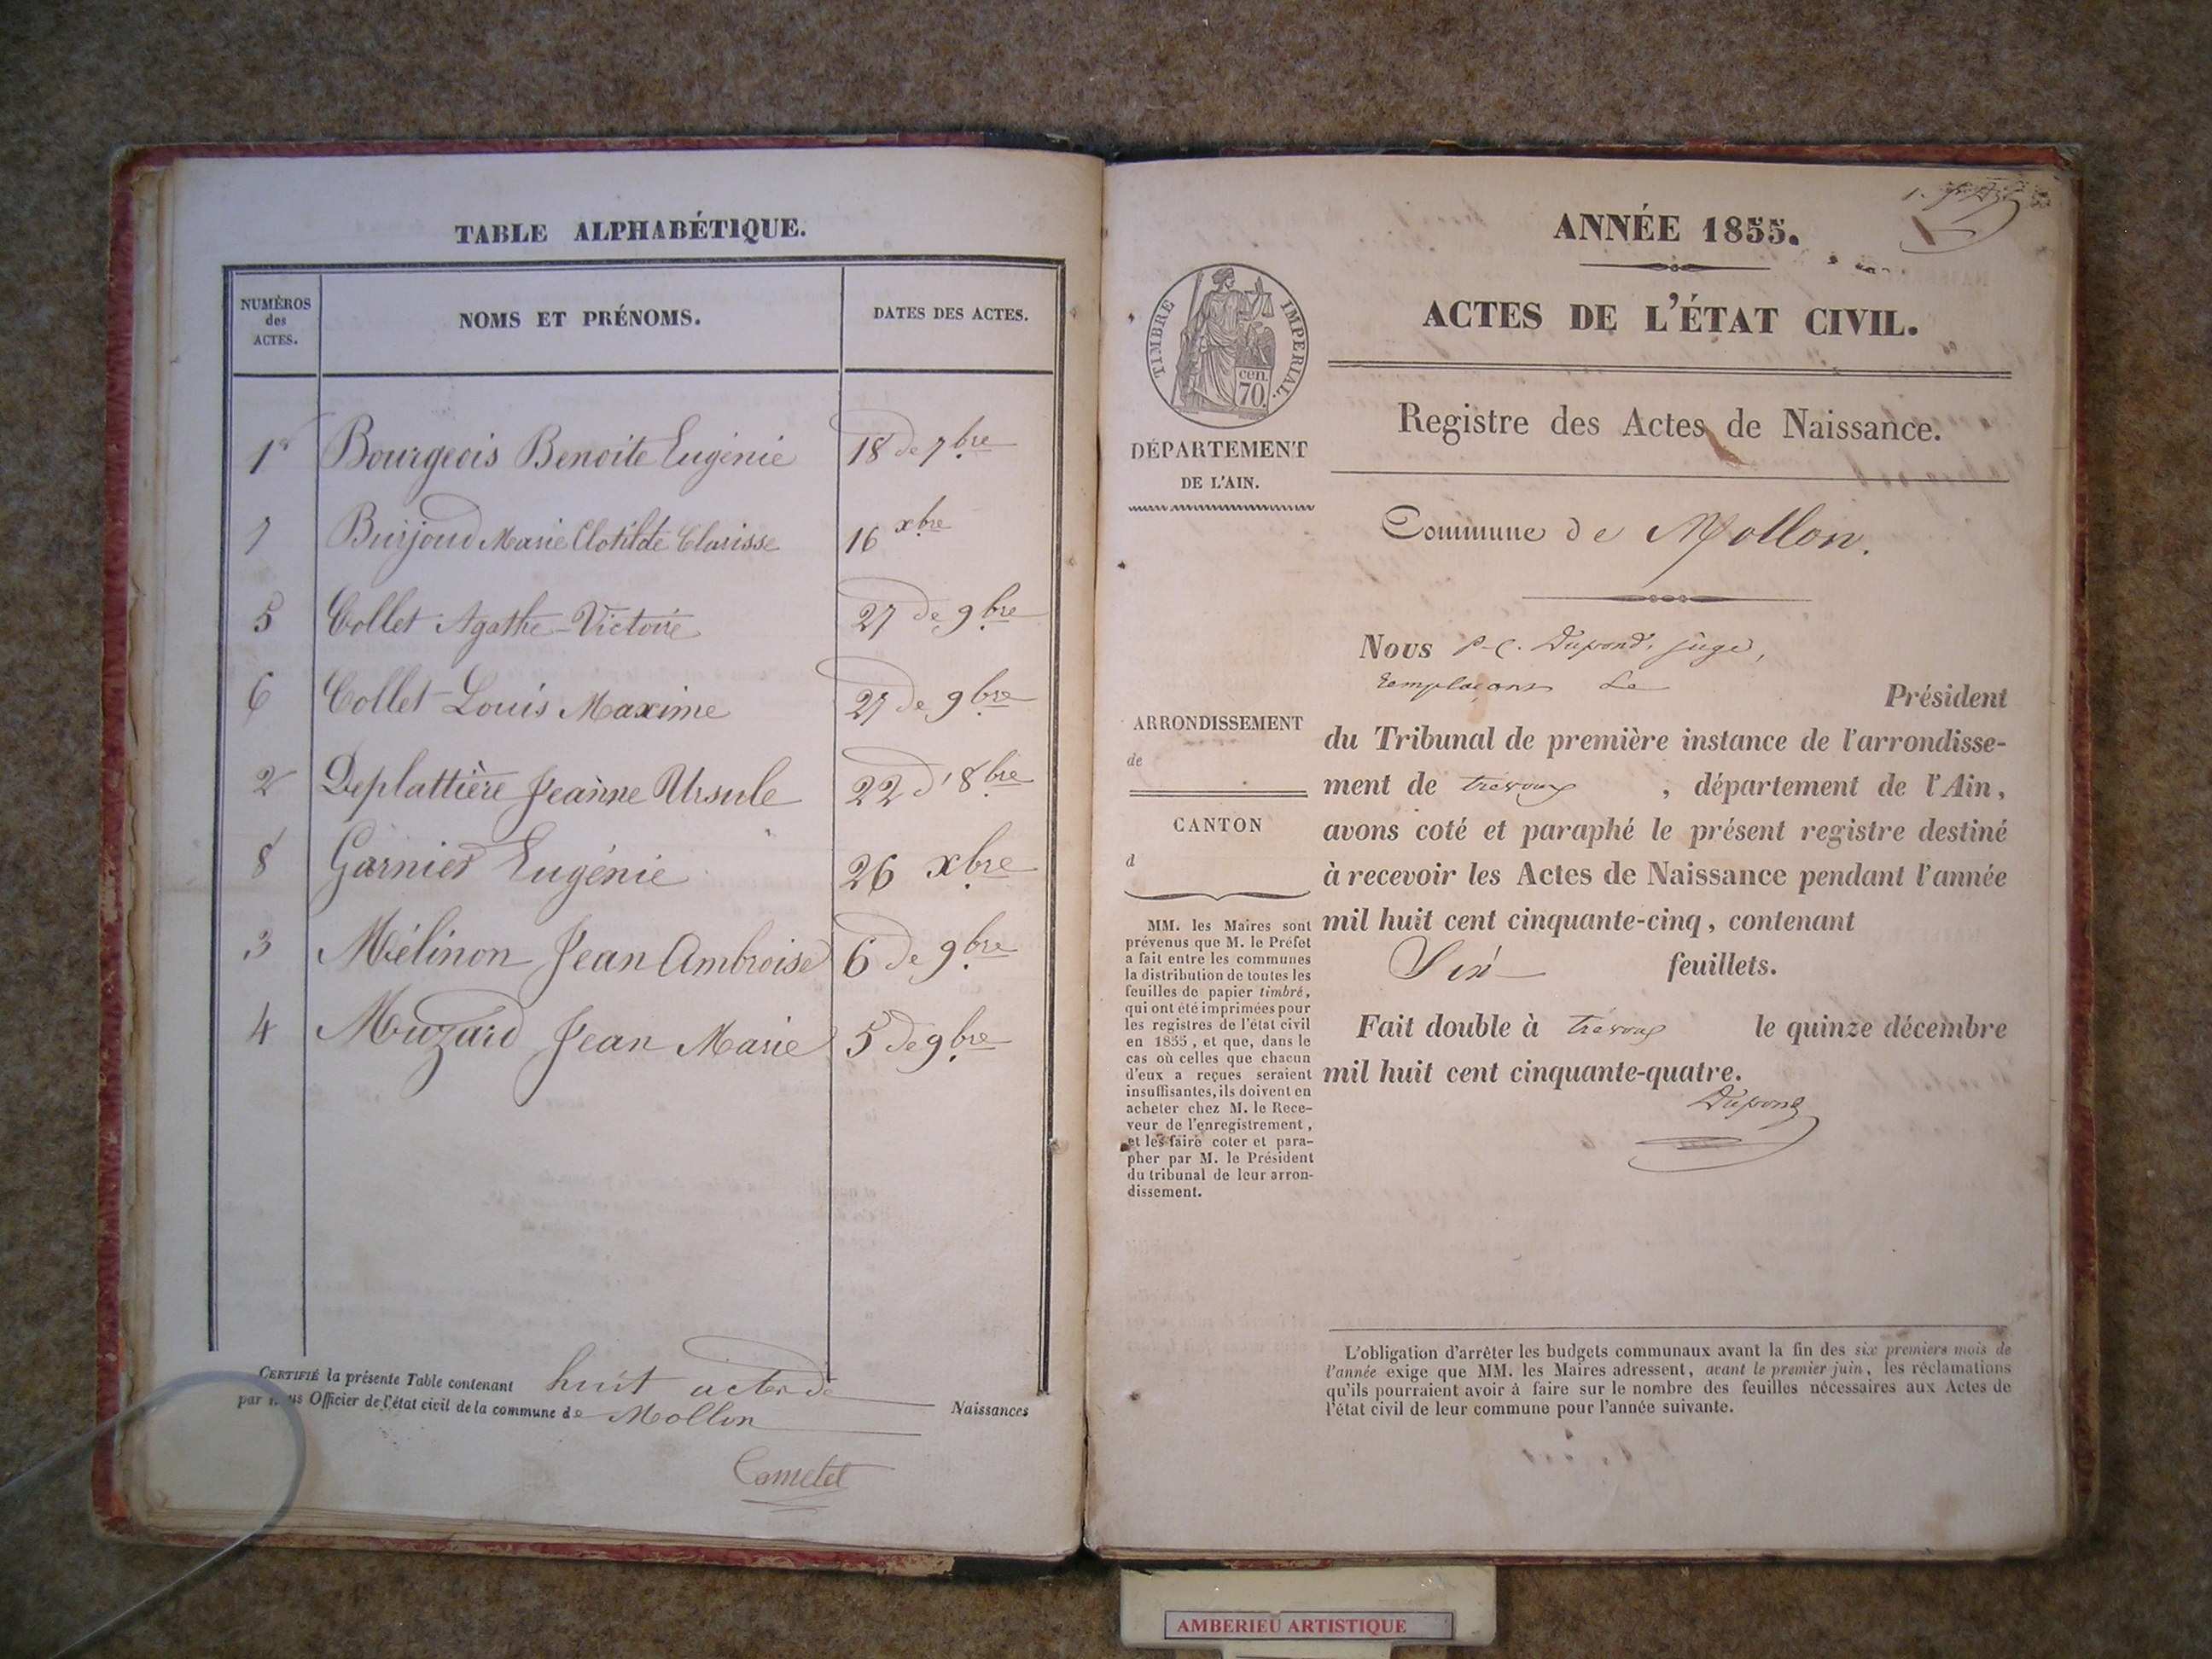 TABLE ALPHABÉTIQUE.
NUMÉROS des ACTES. NOMS ET PRÉNOMS. DATES DES ACTES.
1er Bourgeois Benoite Eugénie 18 de 7bre
7 Burjoud Marie Clotilde Clarisse 16 xbre
5 Collet Agathe-Victoire 27 de 9bre
6 Collet Louis Maxime 27 de 9bre
2 Deplattière Jeanne Ursule 22 d'8bre
8 Garnier Eugénie 26 xbre
3 Mélinon Jean Ambroise 6 de 9bre
4 Muzard Jean Marie 5 de 9bre
CERTIFIÉ la présente Table contenant huit actes de Naissances
par nous Officier de l'état civil de la commune de Mollon
ANNÉE 1855.
ACTES DE L'ÉTAT CIVIL.
TIMBRE IMPERIAL.
cen.
70.
DÉPARTEMENT
DE L'AIN.
Registre des Actes de Naissance.
Commune de Mollon.
Nous P-C. Dupond, juge,
remplaçant le Président
du Tribunal de première instance de l'arrondisse-
ment de trévoux, département de l'Ain,
avons coté et paraphé le présent registre destiné
à recevoir les Actes de Naissance pendant l'année
mil huit cent cinquante-cinq, contenant
Six feuillets.
Fait double à trévoux le quinze décembre
mil huit cent cinquante-quatre.
Dupond
ARRONDISSEMENT
de
CANTON
d
MM. les Maires sont
prévenus que M. le Préfet
a fait entre les communes
la distribution de toutes les
feuilles de papier timbré,
qui ont été imprimées pour
les registres de l'état civil
en 1855, et que, dans le
cas où celles que chacun
d'eux a reçues seraient
insuffisantes, ils doivent en
acheter chez M. le Rece-
veur de l'enregistrement,
et les faire coter et para-
pher par M. le Président
du tribunal de leur arron-
dissement.
L'obligation d'arrêter les budgets communaux avant la fin des six premiers mois de
l'année exige que MM. les Maires adressent, avant le premier juin, les réclamations
qu'ils pourraient avoir à faire sur le nombre des feuilles nécessaires aux Actes de
l'état civil de leur commune pour l'année suivante.
AMBERIEU ARTISTIQUE